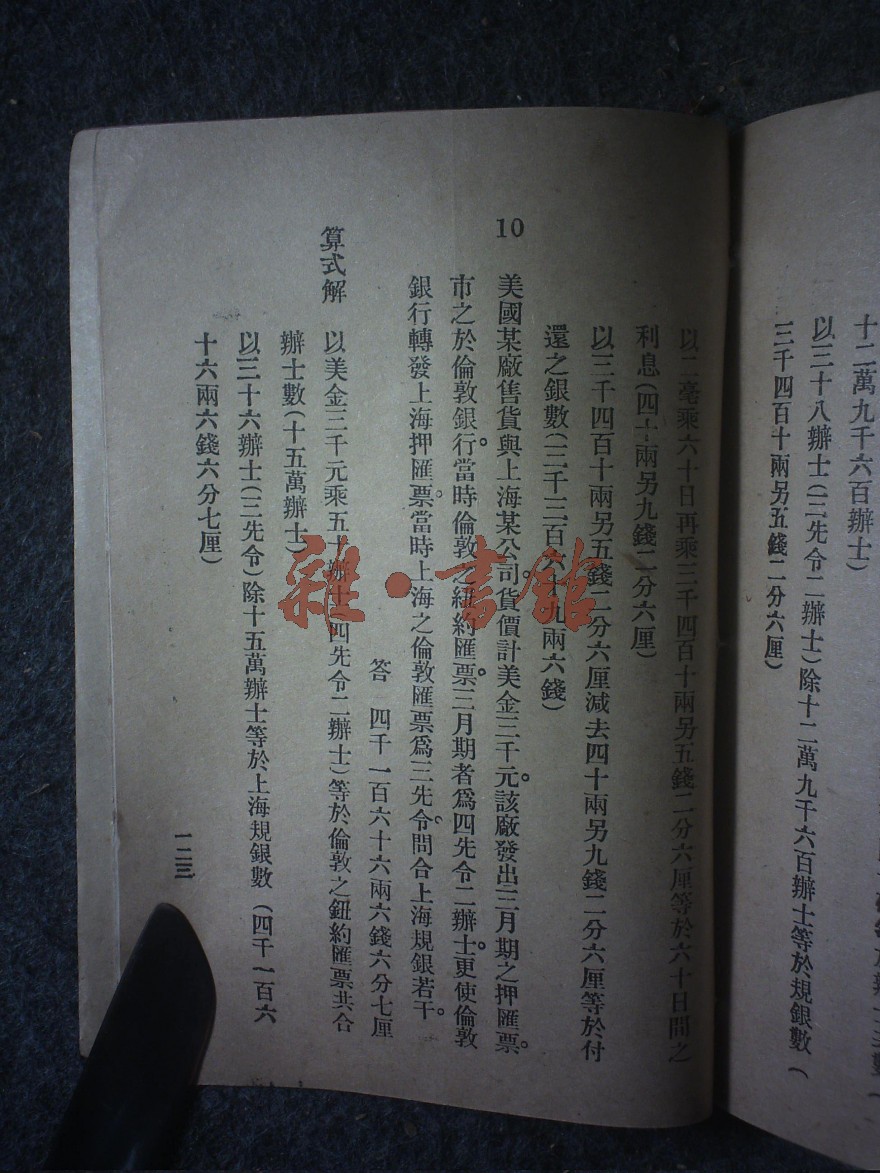 十二萬九千六百辦士)
以三十八辦士(三先令二辦士)除十二萬九千六百辦士等於規銀數(
三千四百十兩另五錢二分六厘)
以二毫乘六十日再乘三千四百十兩另五錢二分六厘等於六十日間之
利息(四十兩另九錢二分六厘)
以三千四百十兩另五錢二分六厘減去四十兩另九錢二分六厘等於付
還之銀數(三千三百六十九兩六錢)
10 美國某廠售貨與上海某公司。貨價計美金三千元。該廠發出三月期之押匯票。
市之於倫敦銀行。當時倫敦之紐約匯票。三月期者爲四先令二辦士。更使倫敦
銀行轉發上海押匯票。當時上海之倫敦匯票爲三先令。問合上海規銀若干。
答 四千一百六十六兩六錢六分七厘
算式解 以美金三千元乘五十辦士(四先令二辦士)等於倫敦之鈕約匯票共合
辦士數(十五萬辦士)
以三十六辦士(三先令)除十五萬辦士等於上海規銀數(四千一百六
十六兩六錢六分七厘)
一二三
雜·書館